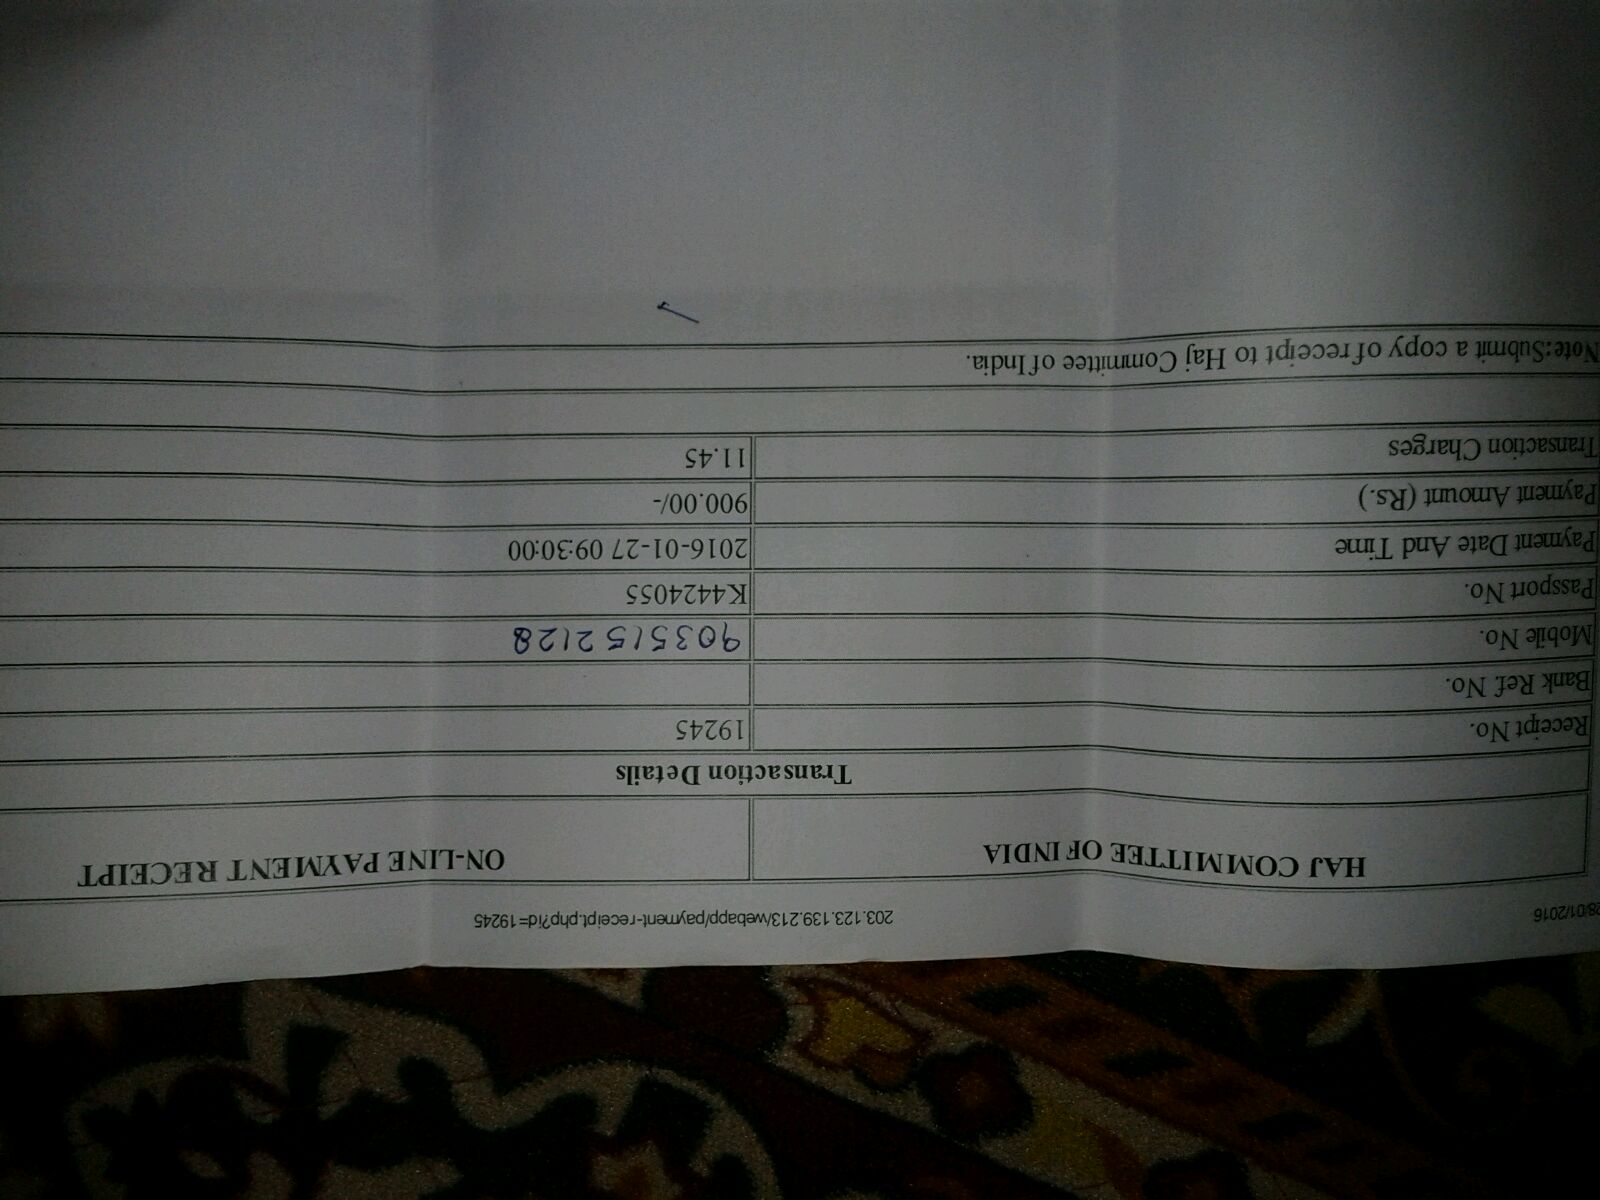 28/01/2016 203.123.139.213/webapp/payment-receipt.php?id=19245
HAJ COMMITTEE OF INDIA ON-LINE PAYMENT RECEIPT
Transaction Details
Receipt No. 19245
Bank Ref. No.
Mobile No. 9035152128
Passport No. K4424055
Payment Date And Time 2016-01-27 09:30:00
Payment Amount (Rs.) 900.00/-
Transaction Charges 11.45
Note:Submit a copy of receipt to Haj Committee of India.